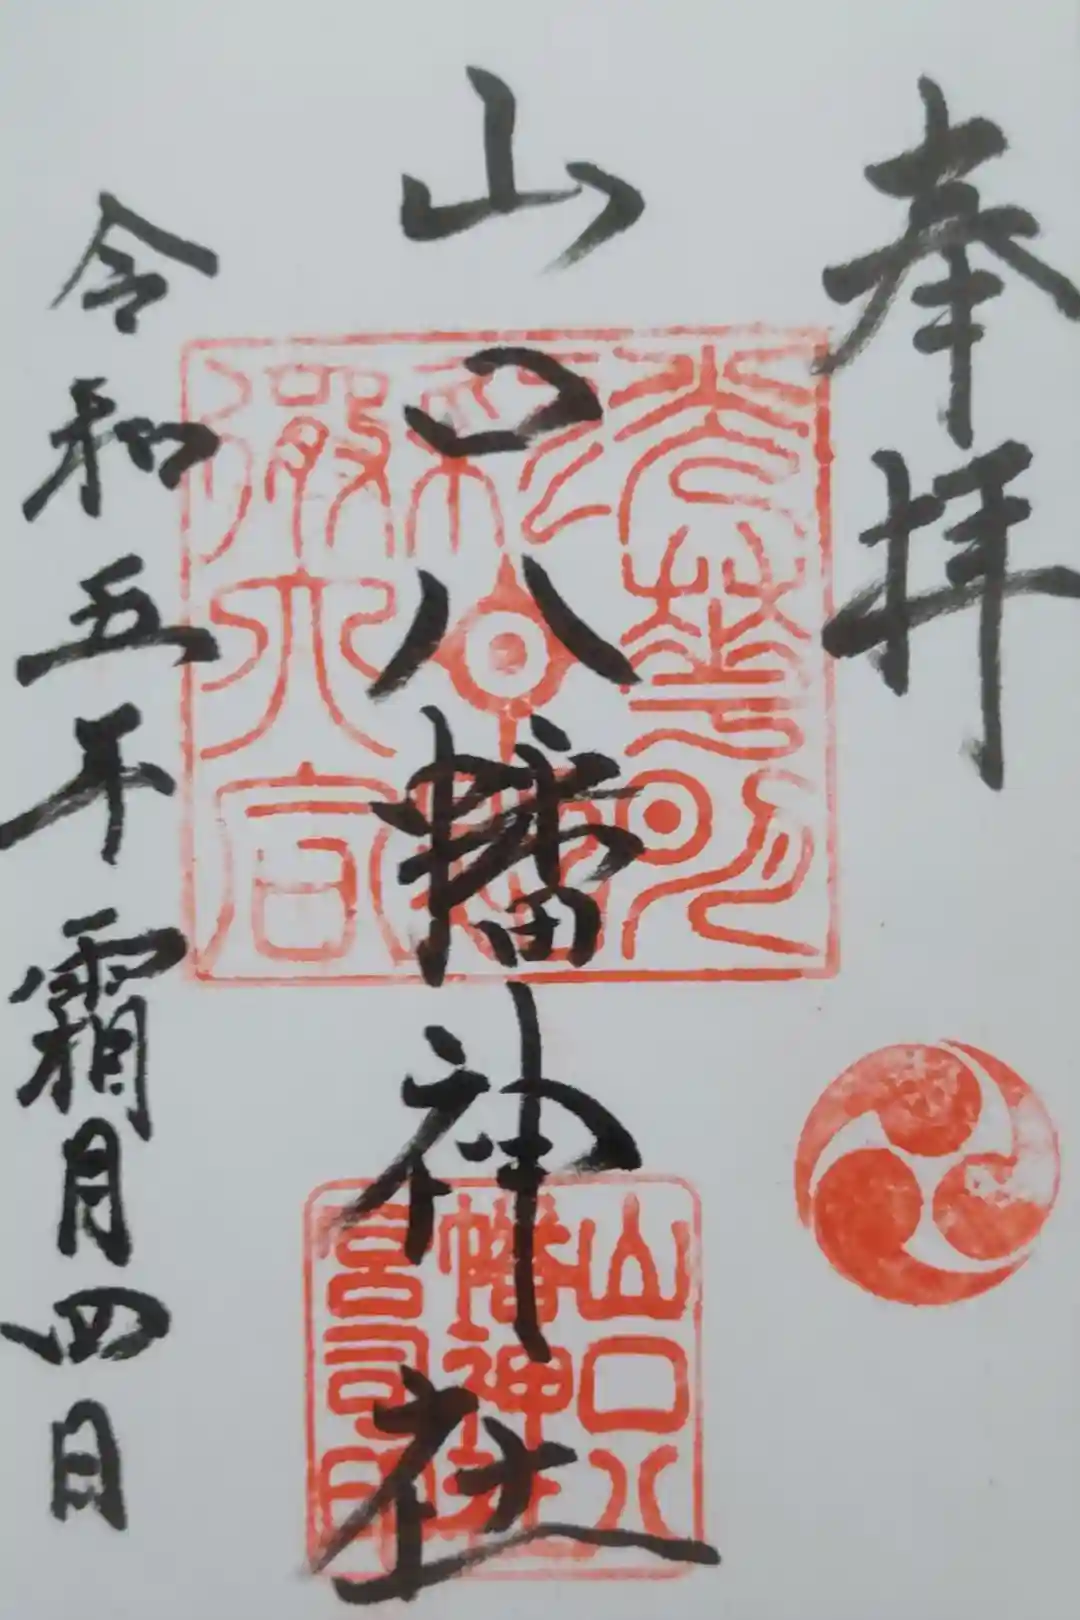 奉拝
山口八幡神社
令和五年霜月四日
山口八
幡神社
宮司印